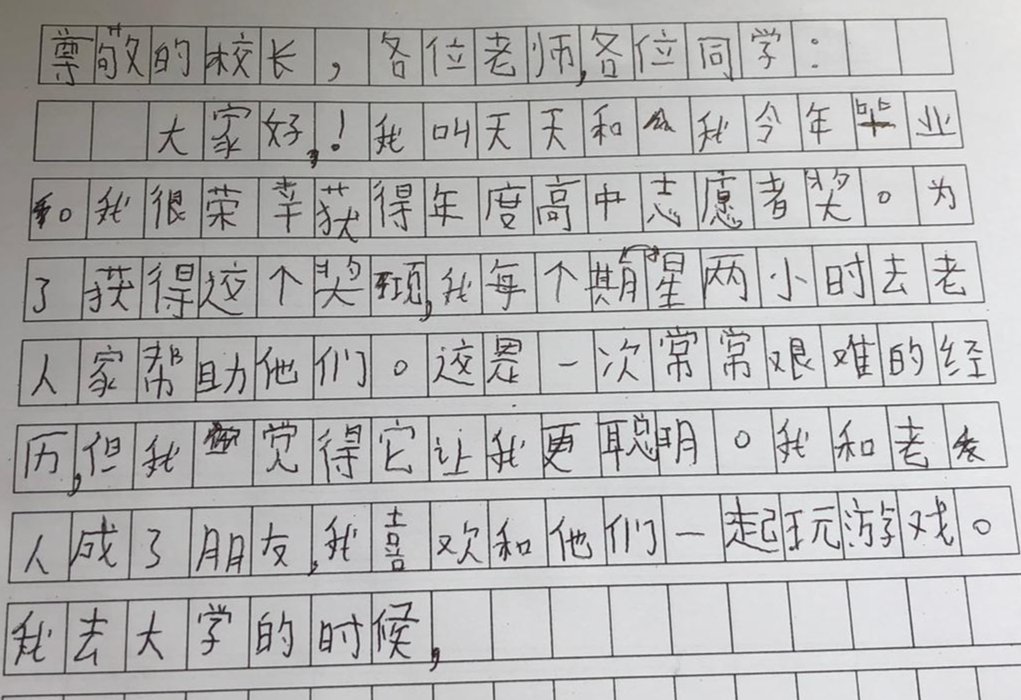 尊敬的校长，各位老师，各位同学：
大家好，！我叫天天和我今年毕业
。我很荣幸获得年度高中志愿者奖。为
了获得这个奖项，我每个期星两小时去老
人家帮助他们。这是一次常常艰难的经
历，但我觉得它让我更聪明。我和老
人成了朋友，我喜欢和他们一起玩游戏。
我去大学的时候，